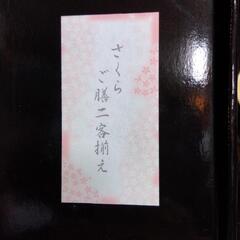 さくら
ご膳二客揃え